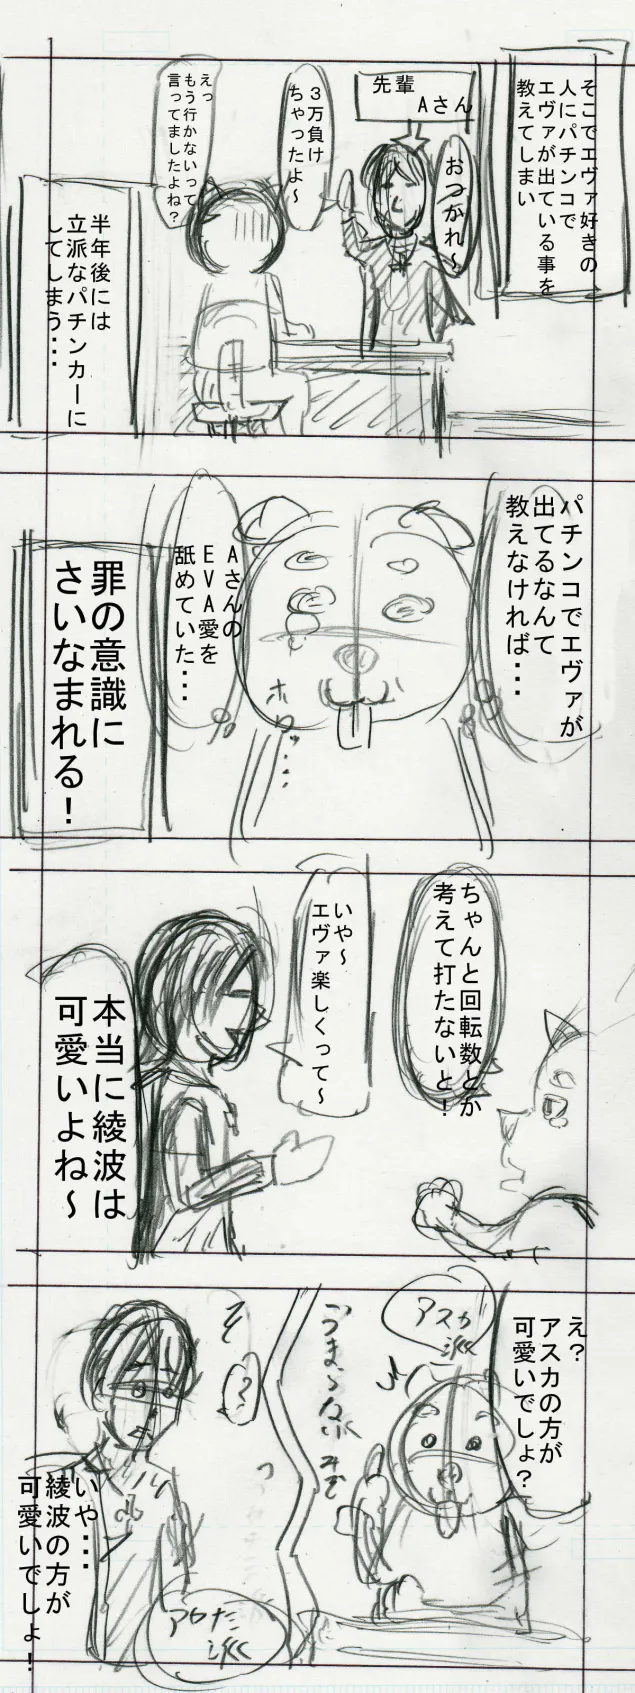 そこでエヴァ好きの
人にパチンコで
エヴァが出ている事を
教えてしまい
先輩
Aさん
おつかれ～
3万負け
ちゃったよ～
えっ
もう行かないって
言ってましたよね?
半年後には
立派なパチンカーに
してしまう・・・
パチンコでエヴァが
出てるなんて
教えなければ・・・
Aさんの
EVA愛を
舐めていた・・・
ホロッ・・・
罪の意識に
さいなまれる!
ちゃんと回転数とか
考えて打たないと!
いや～
エヴァ楽しくって～
本当に綾波は
可愛いよね～
え?
アスカの方が
可愛いでしょ?
アスカ
派
いや・・・
綾波の方が
可愛いでしょ!